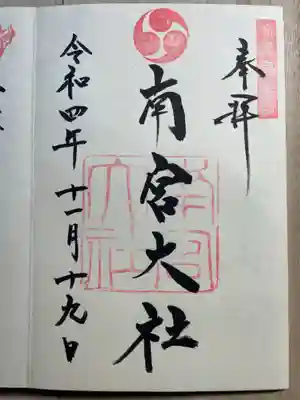 奉拝
南宮大社
令和四年十一月十九日